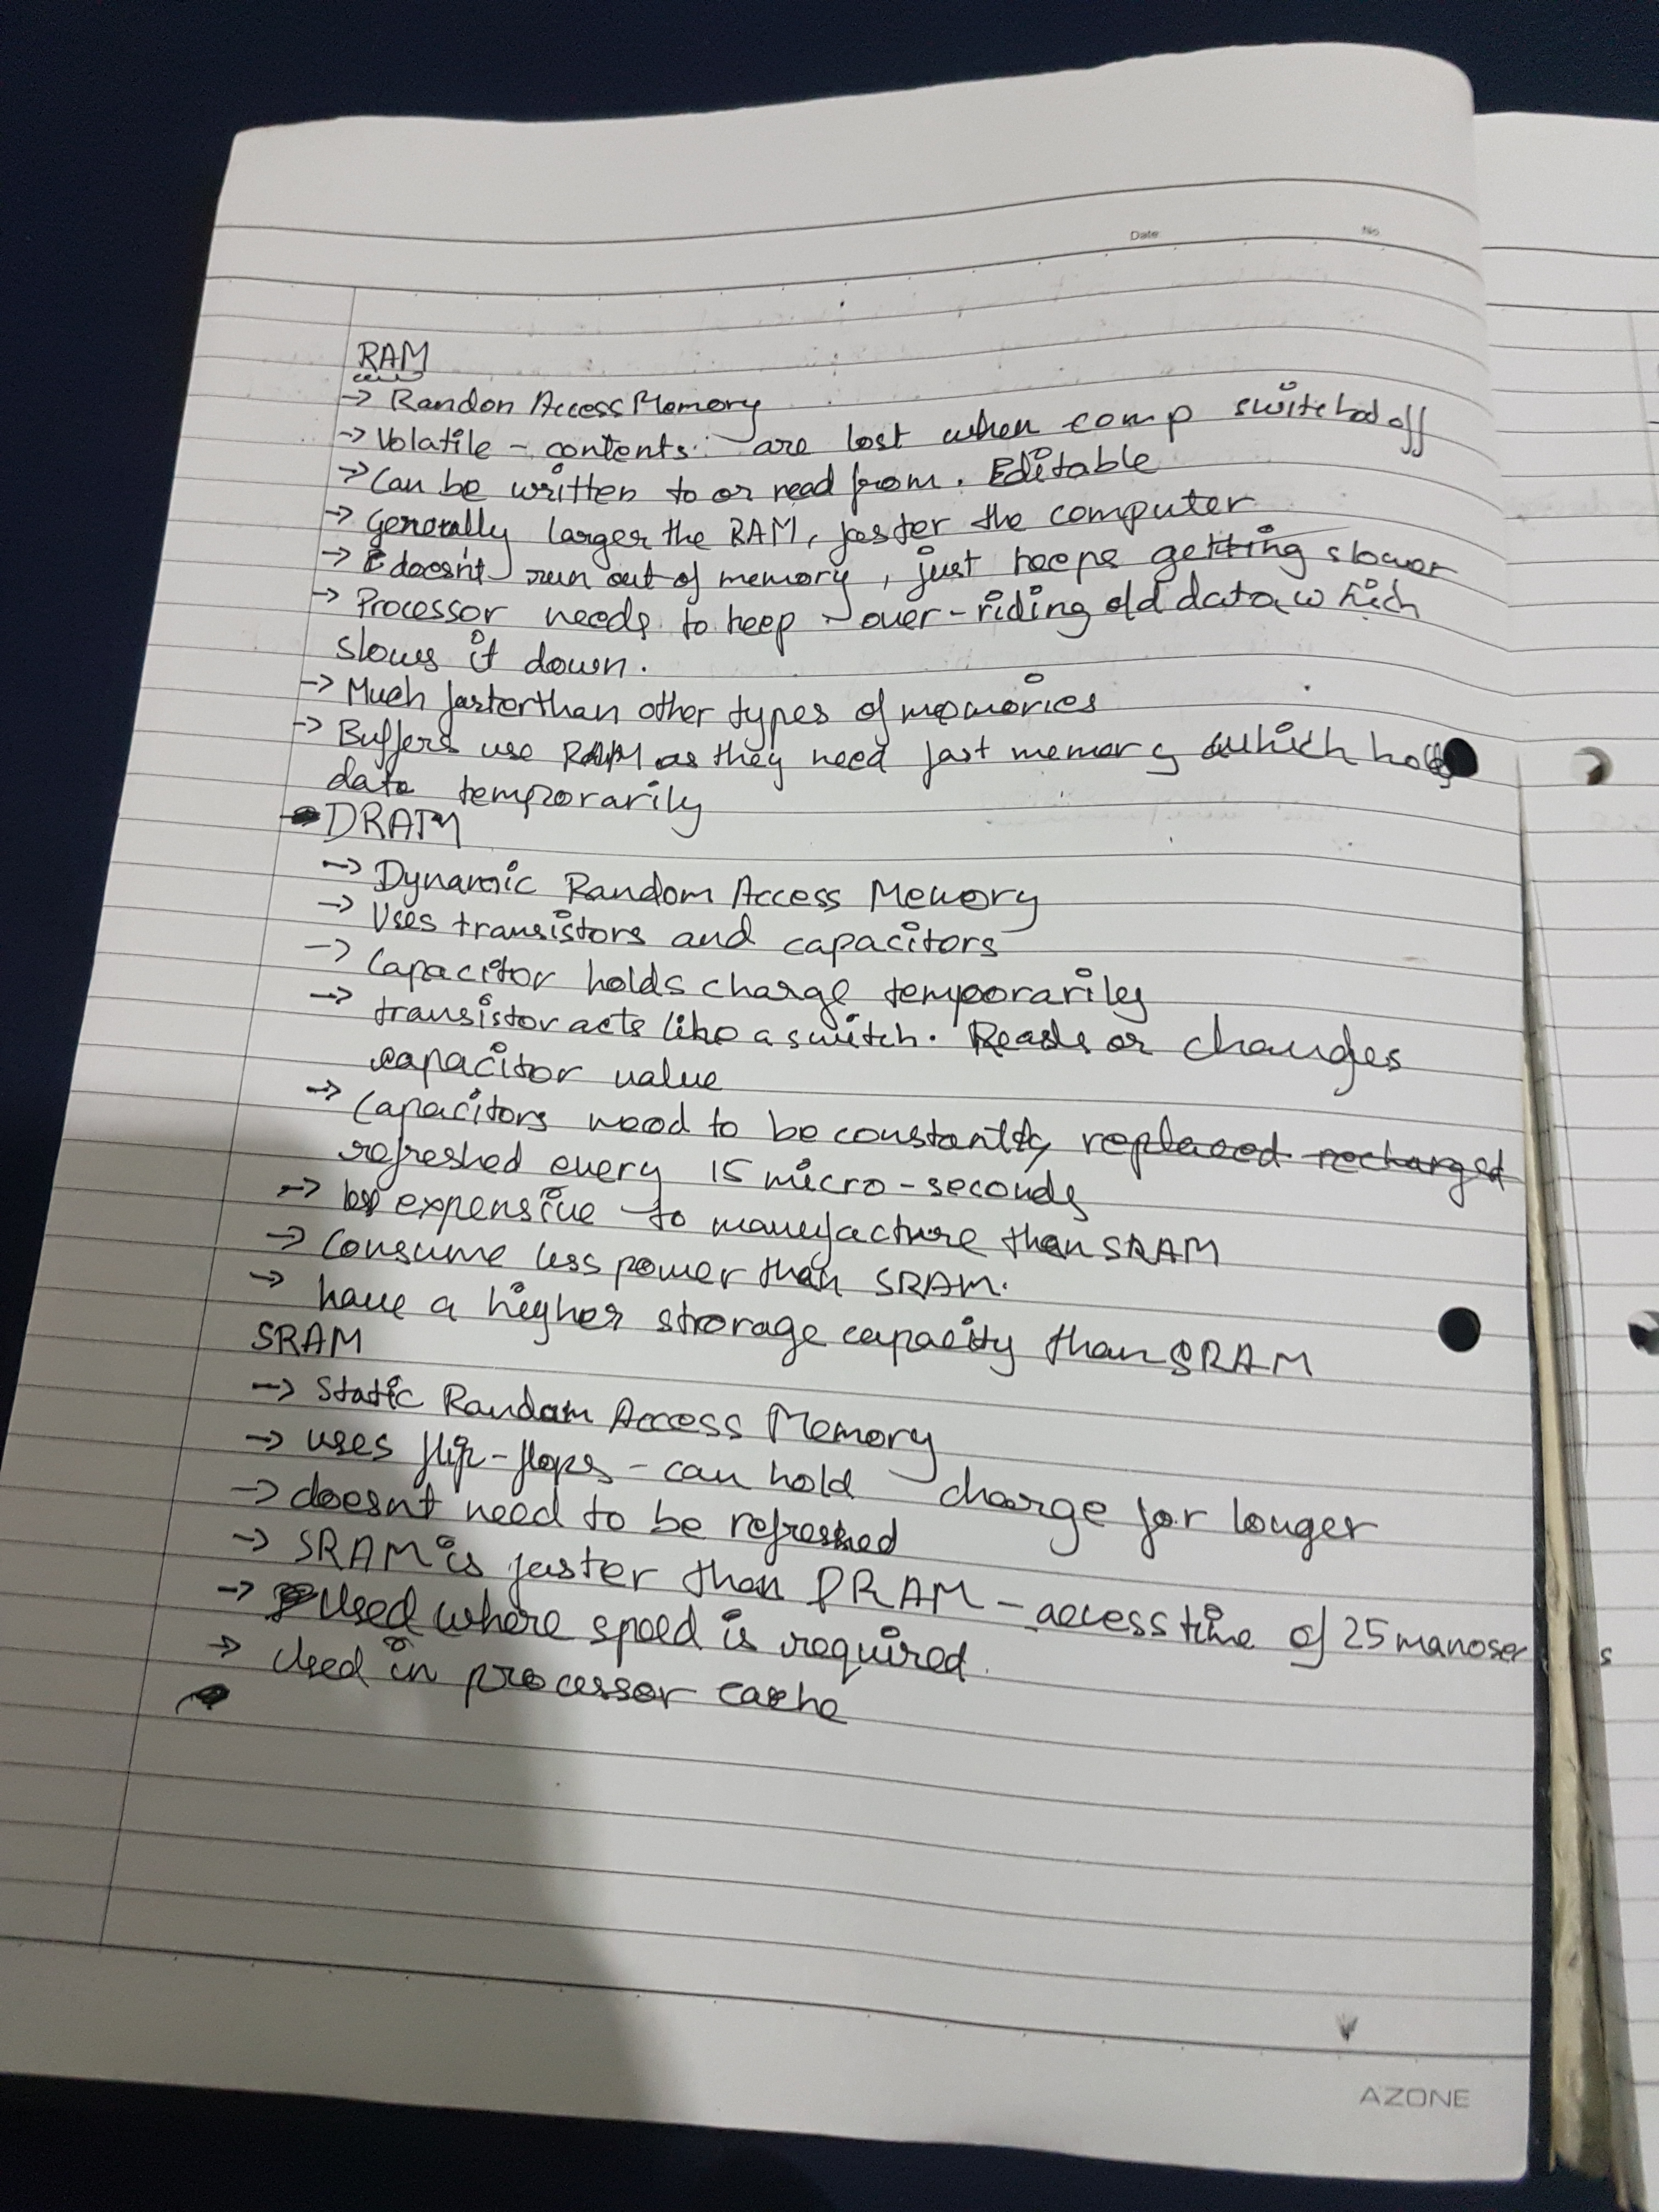 Date No.
RAM
→ Randon Access Memory
→ Volatile - contents are lost when comp switched off
→ Can be written to or read from. Editable
→ Generally larger the RAM, faster the computer
→ doesn't run out of memory, just keeps getting slower
→ Processor needs to keep over-riding old data which
slows it down.
→ Much faster than other types of memories
→ Buffers use RAM as they need fast memory which holds
data temporarily
DRAM
→ Dynamic Random Access Memory
→ Uses transistors and capacitors
→ Capacitor holds charge temporarily
→ transistor acts like a switch. Reads or changes
capacitor value
→ Capacitors need to be constantly replaced recharged
refreshed every 15 micro-seconds
→ less expensive to manufacture than SRAM
→ Consume less power than SRAM.
→ have a higher storage capacity than SRAM
SRAM
→ Static Random Access Memory
→ uses flip-flops - can hold charge for longer
→ doesnt need to be refreshed
→ SRAM is faster than DRAM - access time of 25
→ Used where speed is required.
→ Used in processor cache
AZONE